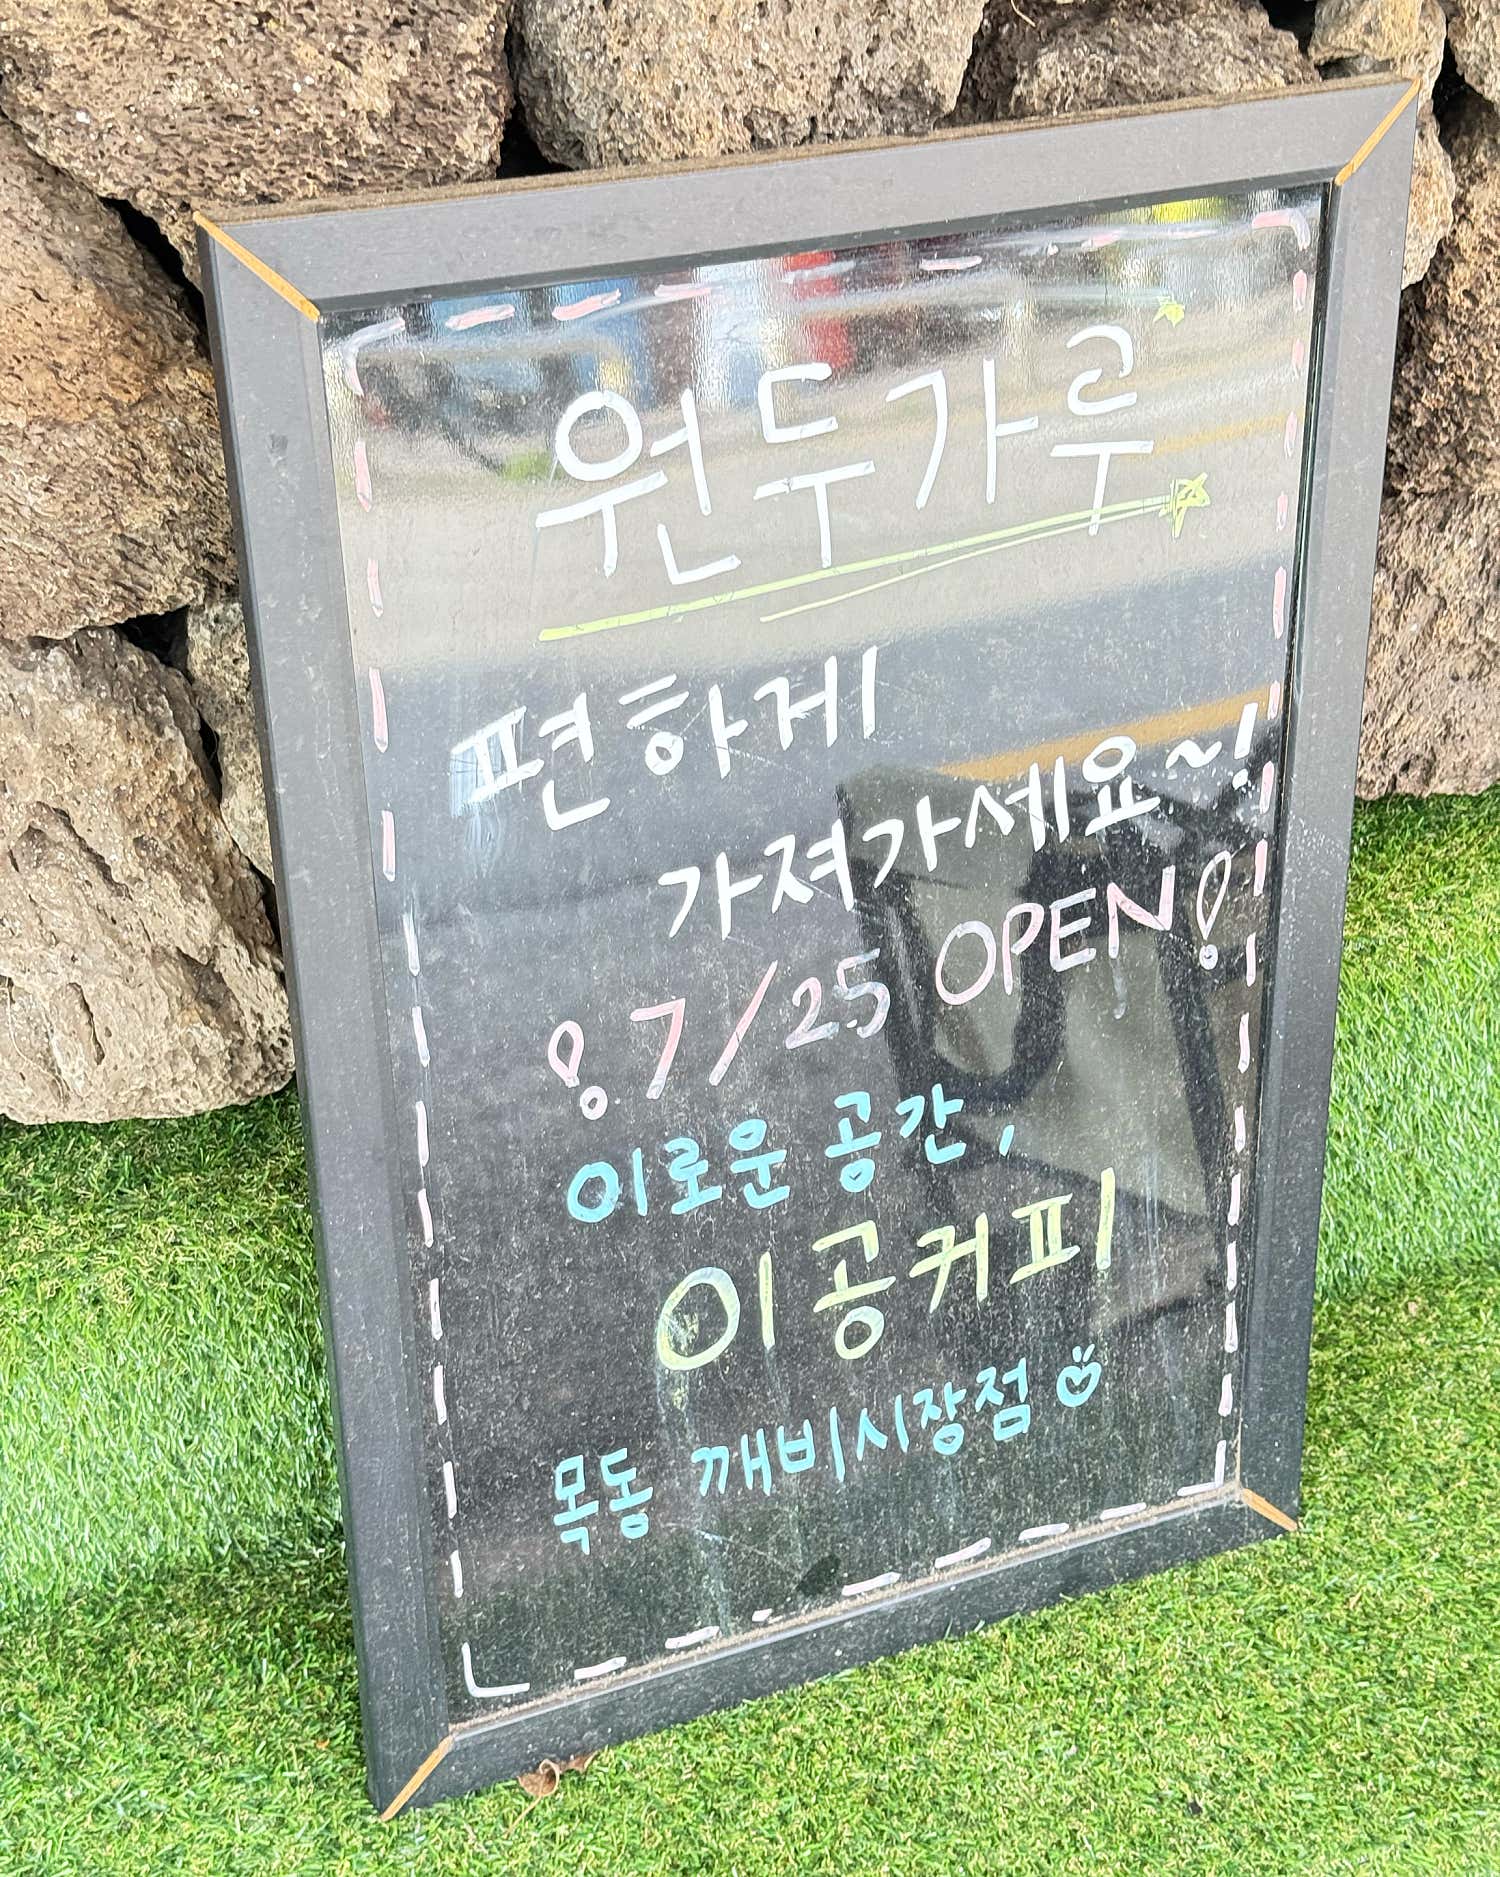 원두가루
편하게
가져가세요~!
! 7/25 OPEN!
이로운 공간,
이공커피
목동 깨비시장점